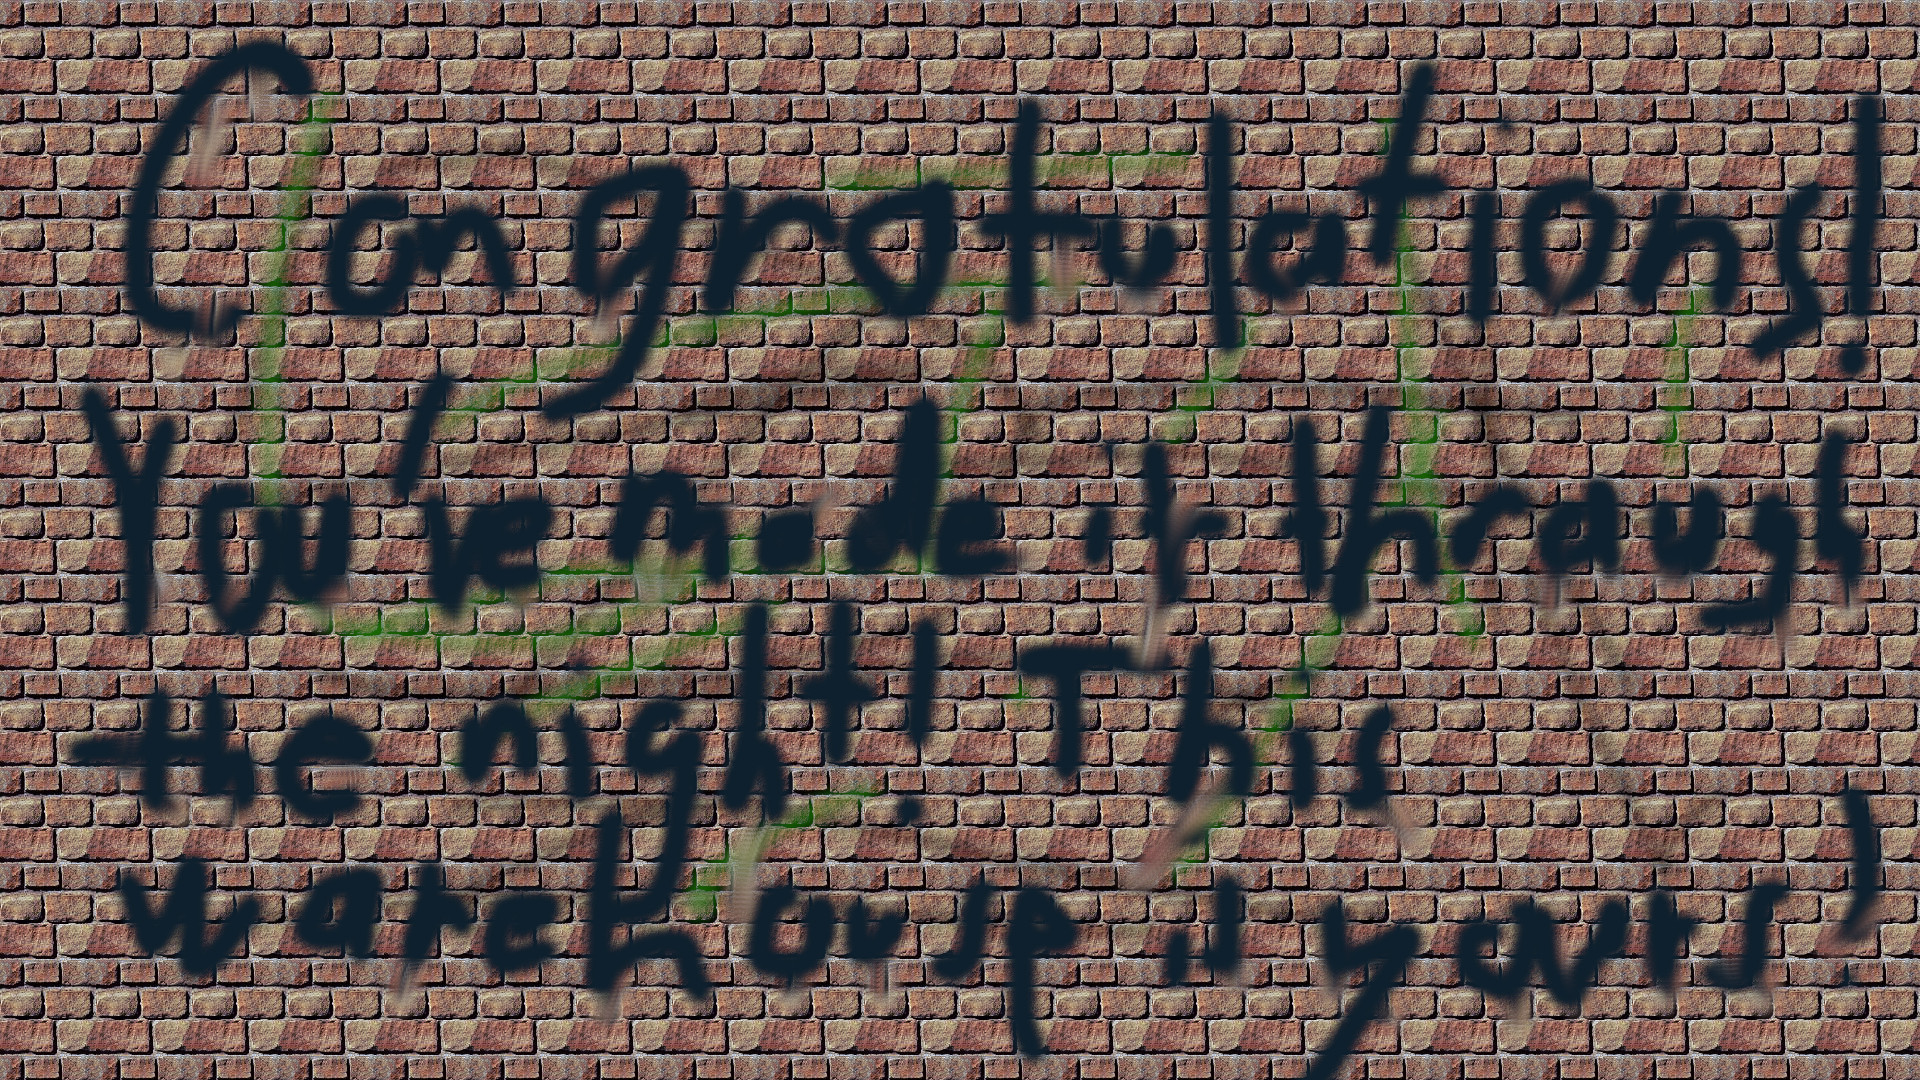 Congratulations!
You've made it through
the night! This
warehouse is yours!